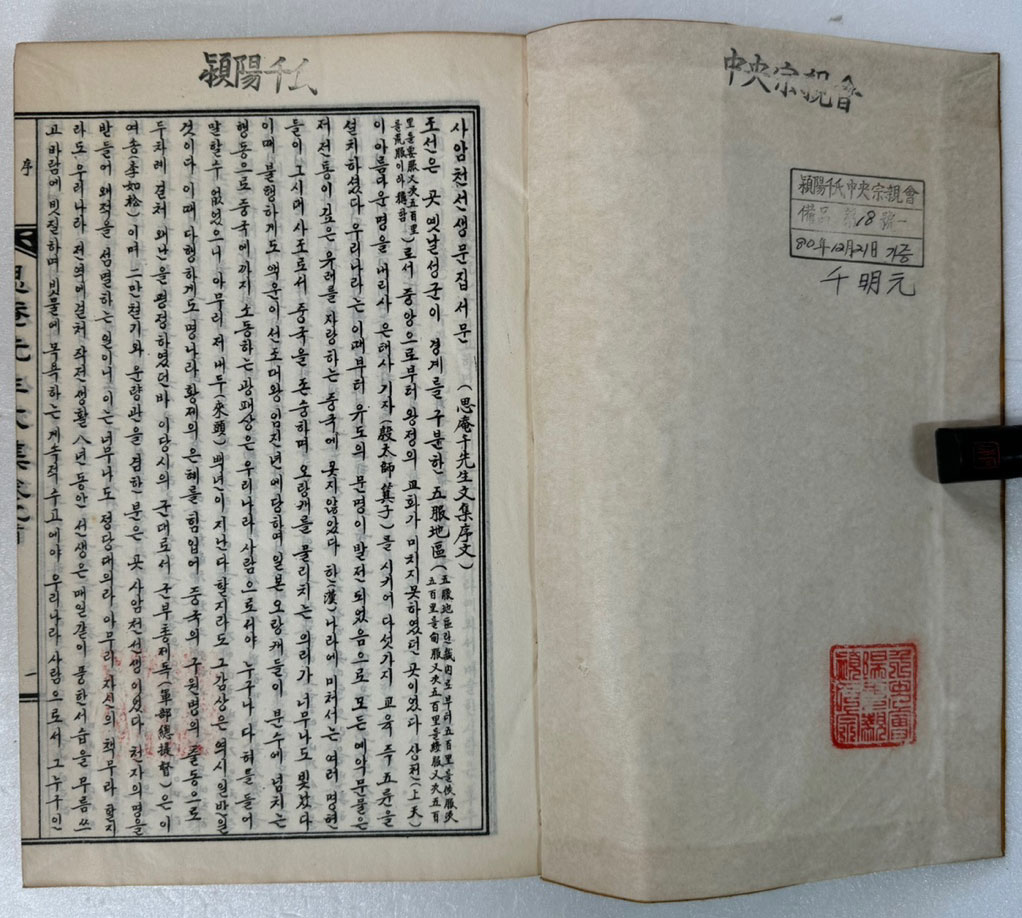 中央宗親會
潁陽千氏中央宗親會
備品 第18號
80年12月21日 기증
千明元
潁陽千氏
사암천선생문집 서문 (思庵千先生文集序文)
조선은 곳 옛날성군이 경계를 구분한 五服地區(五服地區란 畿內로부터五百里를侯服又次
五百里를甸服又次五百里를綏服又次五百
里를要服又次五百里
를荒服이라 稱함)로서 중앙으로부터 왕정의 교화가 미치지못하였던 곳이였다 상천(上天)
이 아름다운 명을 내리사 은태사 기자(殷太師箕子)를 시키어 다섯가지 교육 즉 五륜을
설치하셨다 우리나라는 이때부터 유도의 문명이 발전되었음으로 모든 예악문물은
저전통이 깊은 유래를 자랑하는 중국에 못지않았다 하(漢)나라에 미처서는 여러명현
들이 그시대 사조로서 중국을 존숭하며 오랑캐를 물리치는 의리가 너무나도 빛났다
이때 불행하게도 액운이 선조대왕 임진년에당하여 일본 오랑캐들이 분수에 넘치는
행동으로 중국에까지 소동하는 광패상은 우리나라 사람으로서야 누구나 다 혀를 들어
말할수 없었으니 아무리 저 내두(來頭) 백년이 지난다 할지라도 그감상은 역시 일반일
것이다 이때 다행하게도 명나라 황제의 은혜를 힘입어 중국의 구원명의 출동으로
두차레 걸처 왜난을 평정하였던바 이당시의 군대로서 군부총제독(軍部總提督)은 이
여송(李如松)이며 二만천기와 운량관을 겸한분은 곳 사암천선생이였다 천자의 명을
받들어 왜적을 섬멸하는 일이니 이는 너무나도 정당대의라 아무리 자신의 책무라 할지
라도 우리나라 전역에걸처 작전생활 八년동안 선생은 매일같이 풍한서습을 무릅쓰
고 바람에 빗질하며 빗물에 목욕하는 게속적 수고에야 우리나라 사람으로서 그누구인
序
一